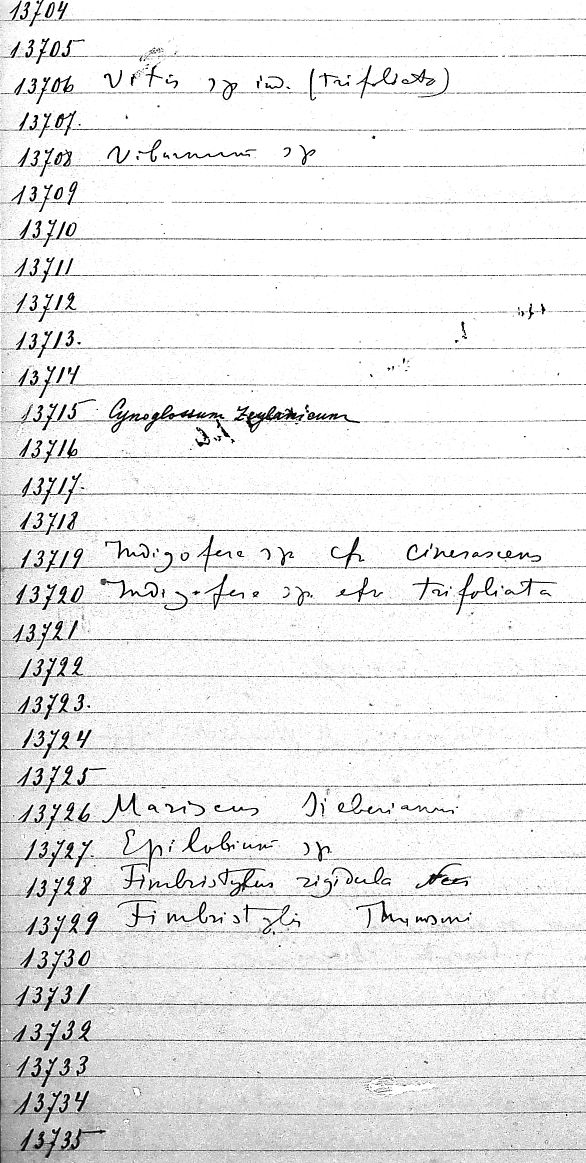 13704
13705
13706 Vitis sp ind. (trifoliata)
13707.
13708 Viburnum sp
13709
13710
13711
13712
13713.
13714
13715 Cynoglossum Zeylanicum
13716
13717.
13718
13719 Indigofera sp cfr cinerascens
13720 Indigofera sp. cfr trifoliata
13721
13722
13723.
13724
13725
13726 Mariscus Sieberianus
13727. Epilobium sp
13728 Fimbristylis rigidula Nees
13729 Fimbristylis Thomsoni
13730
13731
13732
13733
13734
13735